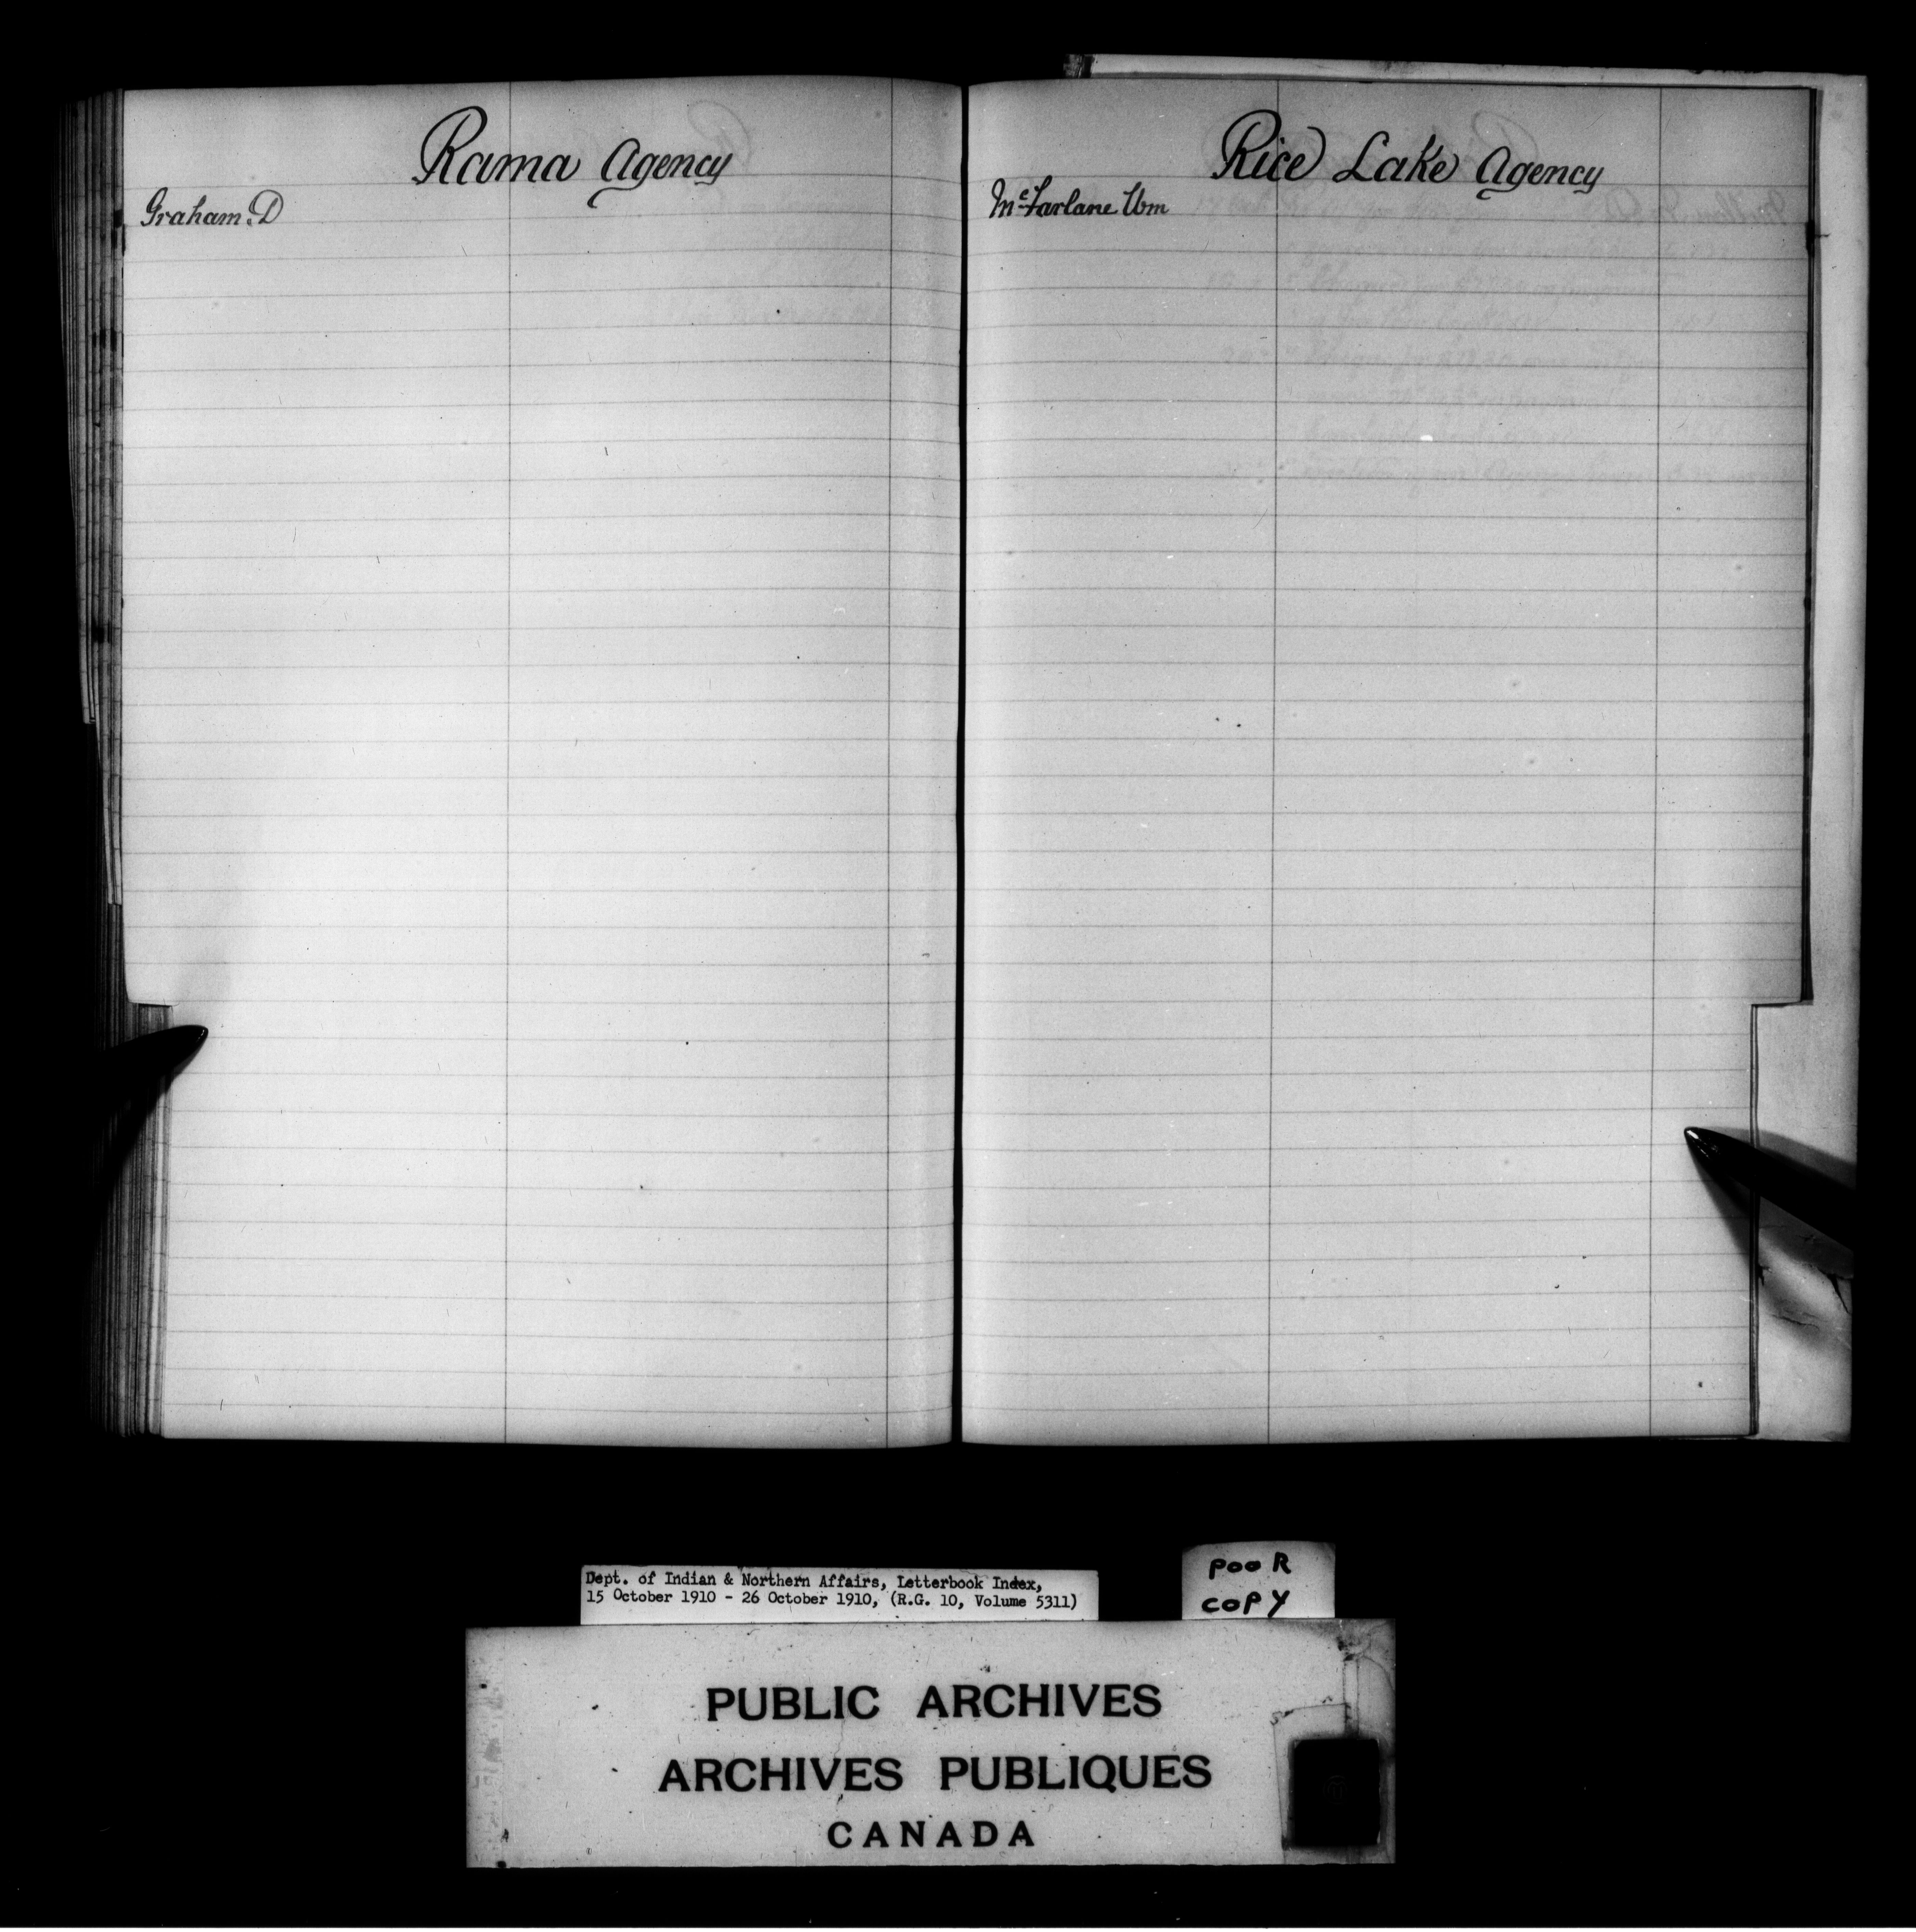 Rama Agency
Graham. D
Rice Lake Agency
McFarlane Wm
Dept. of Indian & Northern Affairs, Letterbook Index,
15 October 1910 - 26 October 1910, (R.G. 10, Volume 5311)
POOR
COPY
PUBLIC ARCHIVES
ARCHIVES PUBLIQUES
CANADA